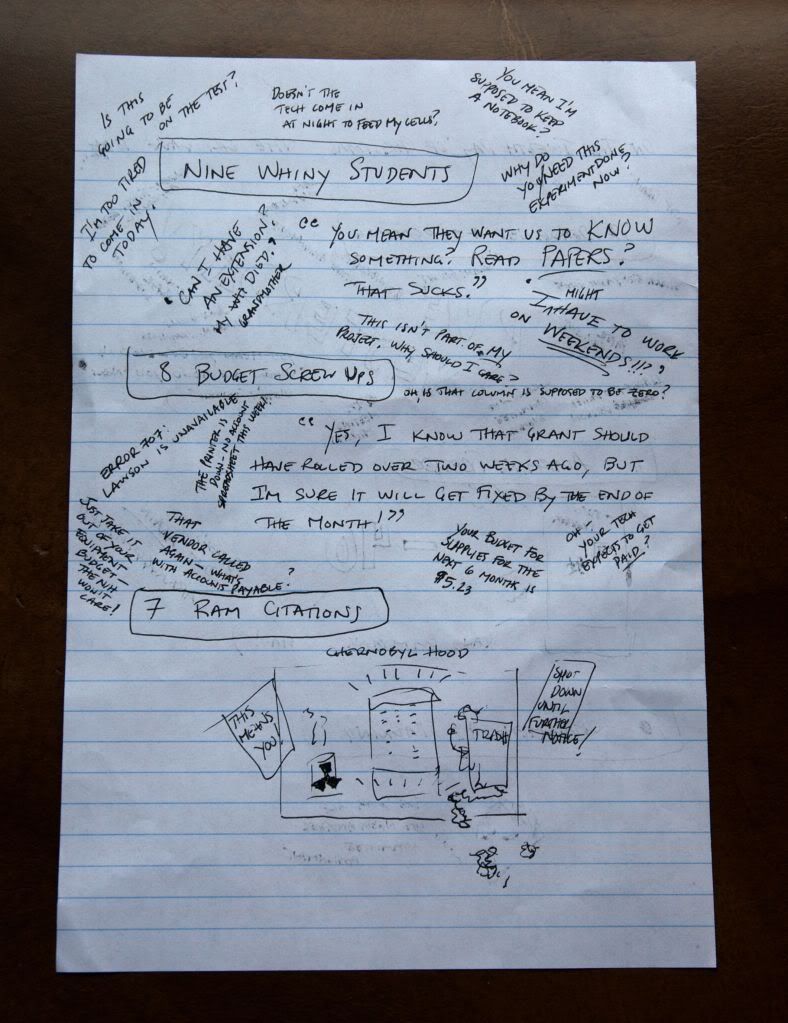 IS THIS
GOING TO BE
ON THE TEST?
DOESN'T THE
TECH COME IN
AT NIGHT TO FEED MY CELLS?
YOU MEAN I'M
SUPOSED TO KEEP
A NOTEBOOK?
I'M TOO TIRED
TO COME IN
TODAY.
NINE WHINY STUDENTS
WHY DO
YOU NEED THIS
EXPERIMENT DONE
NOW?
"CAN I HAVE
AN EXTENSION?
MY DIED."
GRANDMOTHER
"YOU MEAN THEY WANT US TO KNOW
SOMETHING? READ PAPERS?
THAT SUCKS."
"I MIGHT
HAVE TO WORK
ON WEEKENDS!!?"
THIS ISN'T PART OF MY
PROJECT. WHY SHOULD I CARE?
8 BUDGET SCREW UPS
OH, IS THAT COLUMN IS SUPPOSED TO BE ZERO?
ERROR 707:
LAWSON IS UNAVAILABLE
THE PRINTER IS
DOWN - NO ACCOUNT
SPREADSHEET THIS WEEK!
"YES, I KNOW THAT GRANT SHOULD
HAVE ROLLED OVER TWO WEEKS AGO, BUT
I'M SURE IT WILL GET FIXED BY THE END OF
THE MONTH!"
JUST TAKE IT
OUT OF YOUR
EQUIPMENT
BUDGET -
THE NIH
WON'T
CARE!
THAT
VENDOR CALLED
AGAIN - WHAT'S
WITH ACCOUNTS PAYABLE?
YOUR BUDGET FOR
SUPPLIES FOR THE
NEXT 6 MONTH IS
$5.23
OH -
YOUR TECH
EXPECTS TO GET
PAID?
7 RAM CITATIONS
CHERNOBYL HOOD
THIS
MEANS
YOU!
TRASH
SHUT
DOWN
UNTIL
FURTHER
NOTICE!